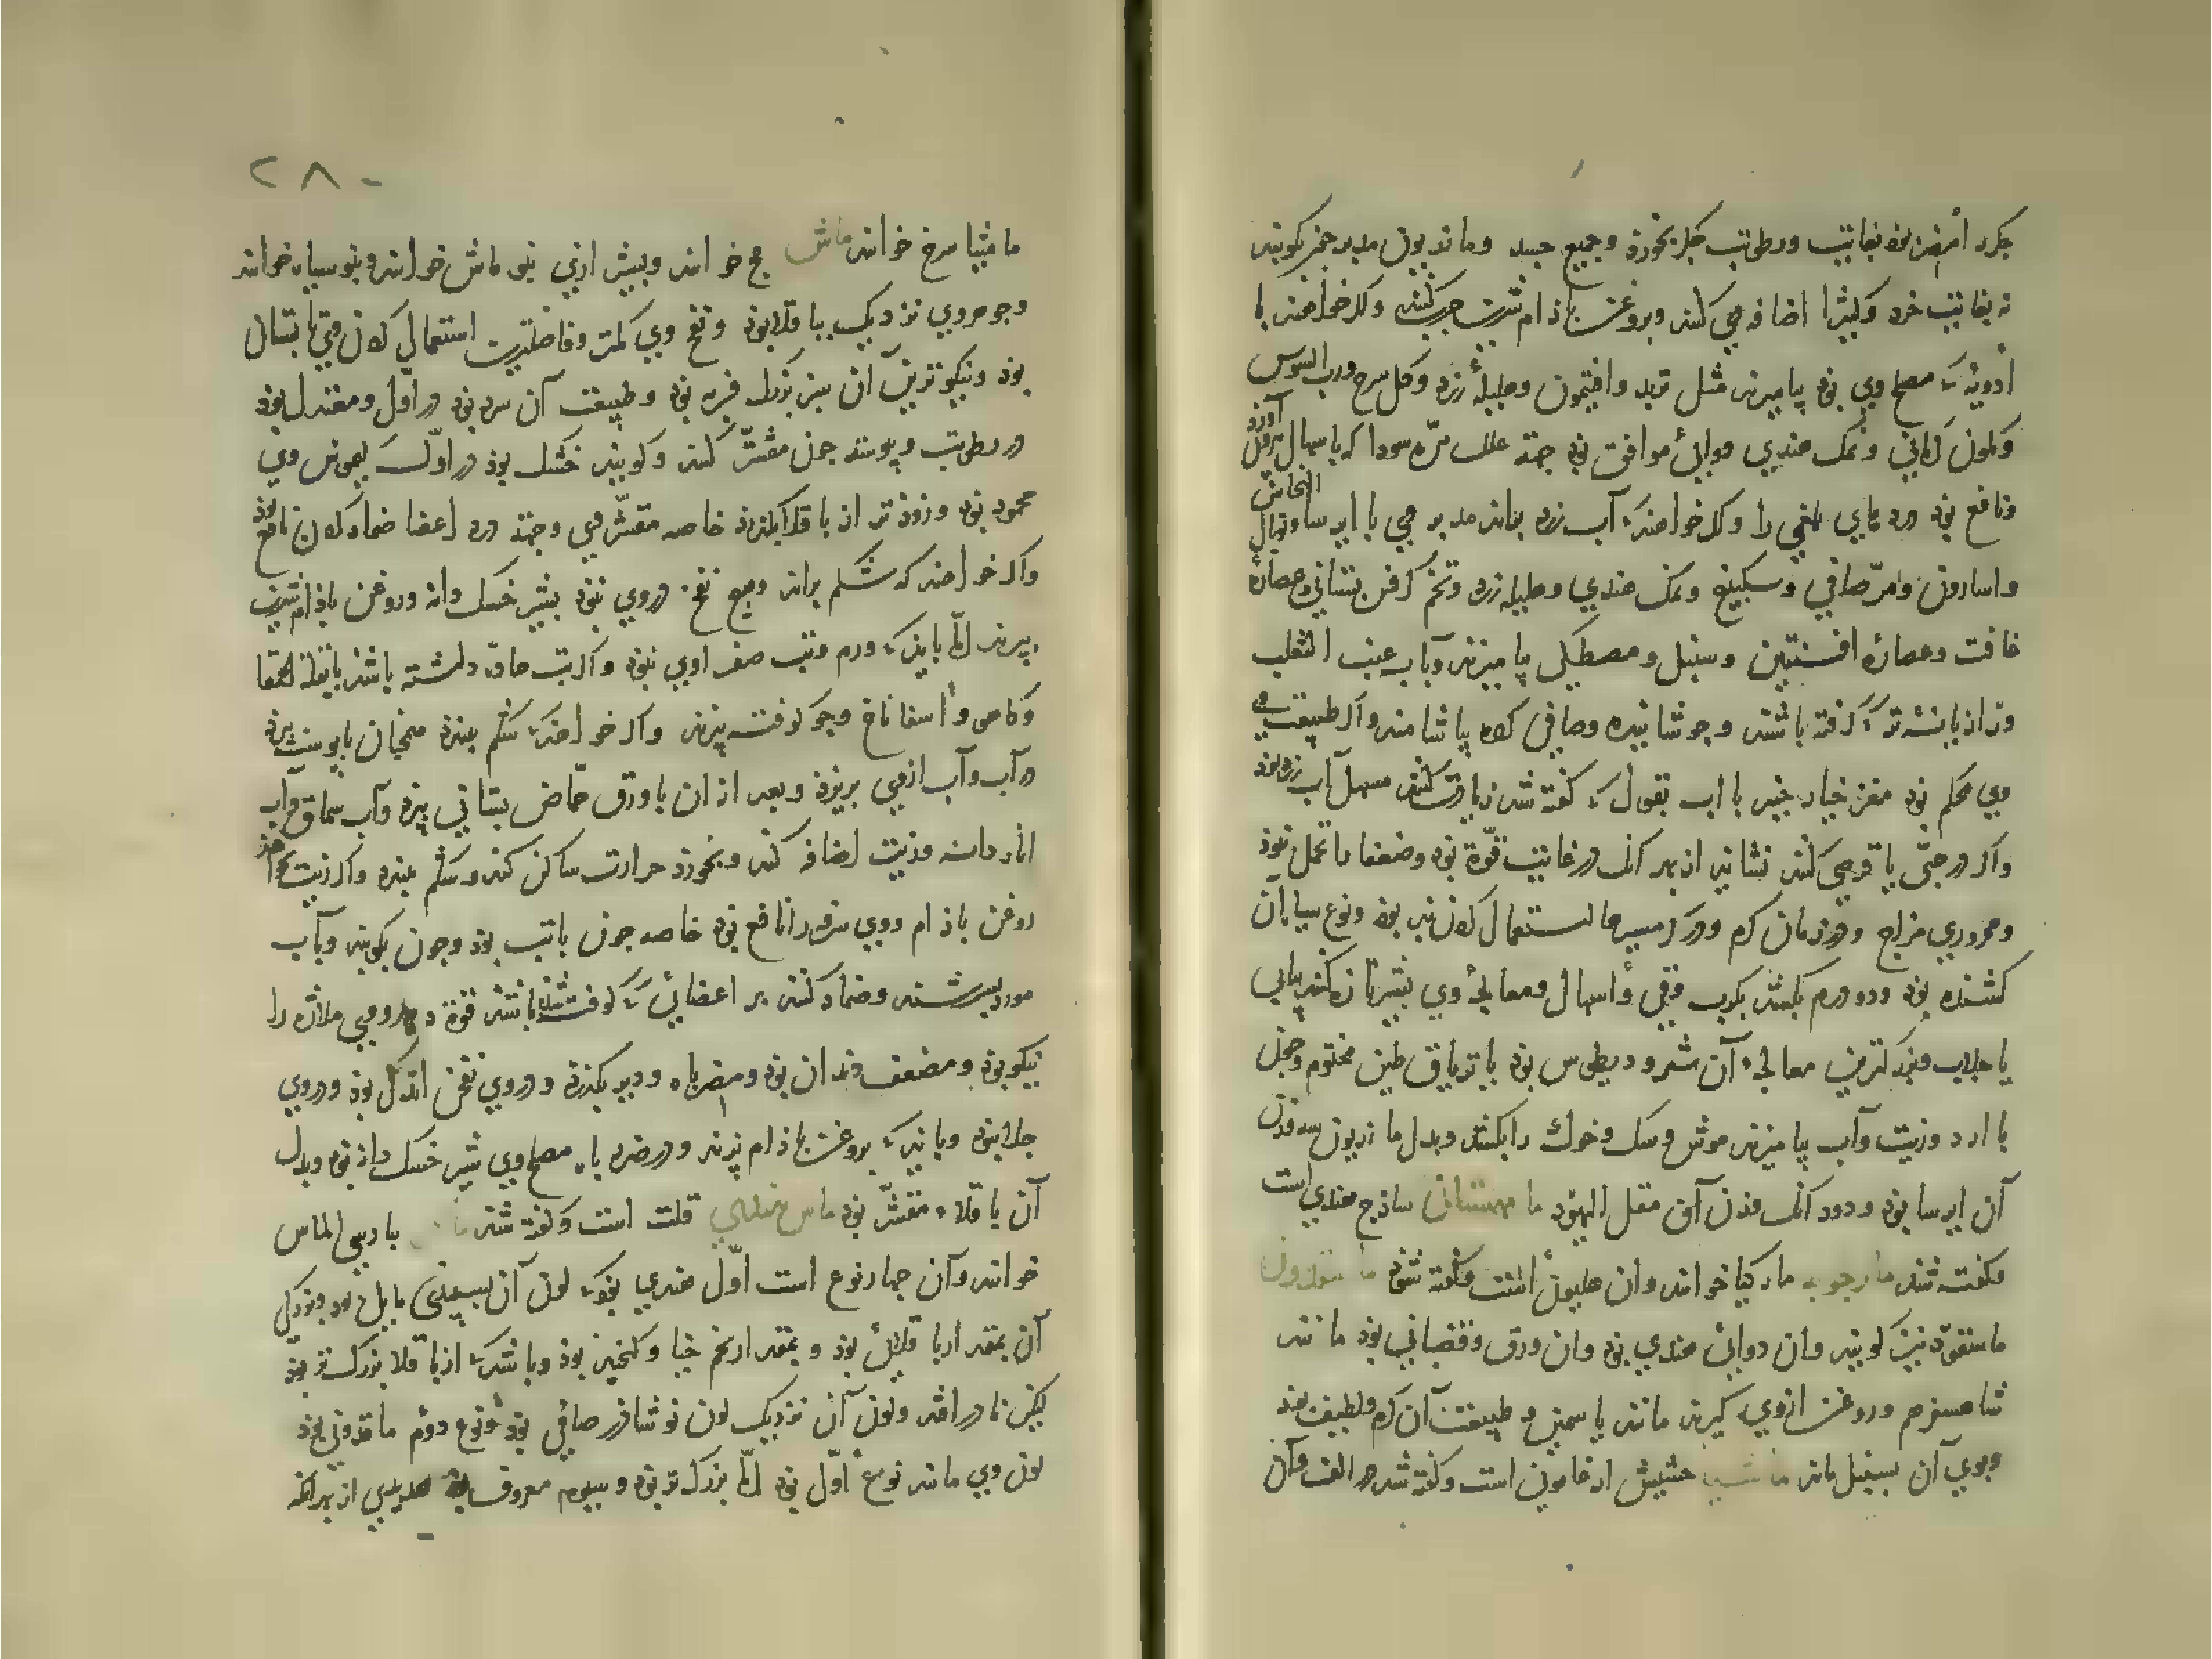 جگر امضر بود بغایت ورطوبت جگر بخورد وجمیع جسد وماندیون مدبر جون بکوبند
نه بغایت خرد وکثیرا اضافه می کنند وبروغن باذام شیرین چرب کنند وکر خواهند با
ادویه که مصلح وی بود بیامیزند مثل تربد وافتیمون وهلیله زرد وکل سرخ ورب السوس
وکمون کرمانی ونمک هندی دوایی موافق بود جهة علل مره سودا که باسهال بیرون آورد
ونافع بود درد پای بلغمی را وکر خواهند که آب زرد براند مدبر می با ایرسا وتوبال النحاس
واسارون ومر صافی وسکبینج ونمک هندی وهلیله زرد وتخم کرفس بستانی وعصاره
غافت وعصاره افسنتین وسنبل ومصطکی بیامیزند وباب عنب الثعلب
ورازیانه تر که کرفته باشند وجوشانیده وصافی کرده بیاشامند واکر طبیعت
وی محکم بود مغز خیار چنبر با اب بقول که کفته شد زیادت کنند مسهل آب زرد بود
واکر در حبی یا قرصی کنند نشاید از بهر آنک در غایت قوة بود وضعفا را تحمل نبود
ومحروری مزاج ودر زمان کرم ودر کرمسیرها استعمال کردن بد بود ونوع سیاه آن
کشنده بود ودو درم بکشد بکرب وقی واسهال ومعالجه وی بشیر تازه کنند پیاپی
یا جلاب وبزرکترین معالجه آن مثرودیطوس بود یا تریاق طین مختوم وچون
با ارد وزیت وآب بیامیزند موش وسک وخوک را بکشد وبدل مازریون سه وزن
آن ایرسا بود ودو دانک وزن آن مقل الیهود ما هستانی ساذج هندی است
وکفته شد مارچوبه مارکیا خوانند وان هلیون است وکفته شود
ماسفود نیز کویند وان دوایی هندی بود وان ورق وقضبانی بود مانند
شاهسفرم وروغن ازوی کیرند مانند یاسمین وطبیعت آن کرم ولطیف بود
وبوی آن بسنبل ماند حشیش ارغامونی است وکفته شد در الف وآن
۲۸۰
مامیثا سرخ خوانند ماش مج خوانند وبیش ازی بنو ماش خوانند وبنو سیاه خوانند
وجوهر وی نزدیک بباقلا بود ونفخ وی کمتر وفاضلترین استعمال کردن وی تابستان
بود ونیکوترین آن سبز بزرک فربه بود وطبیعت آن سرد بود در اول ومعتدل بود
در رطوبت ویبوست چون مقشر کنند وکویند خشک بود در اول کیموس وی
محمود بود وزودتر از باقلا بکذرد خاصه مقشر وی وجهة درد اعضا ضماد کردن نافع بود
واکر خواهند که شکم براند وهیچ نفخ در وی نبود بشیر خسک دانه وروغن باذام شیرین
بپزند اما باید که ورم وتب صفراوی نبود واکر تب حاده داشته باشد با بقلة الحمقا
وکاهو واسفاناخ وجو کوفته بپزند واکر خواهند که شکم ببندد همچنان با پوست بپزد
در آب وآب ازوی بریزد وبعد از ان با ورق حماض بستانی بپزد وآب سماق وآب
اناردانه وزیت اضافه کند وبخورد حرارت ساکن کند وشکم ببندد واکر زیت نخواهند
روغن باذام ووی سرفه را نافع بود خاصه چون با تب بود وچون بکوبند وبآب
مورد بسرشند وضماد کنند بر اعضائی که کوفته شده باشد قوة دهد ووی ملازه را
نیکو بود ومضعف دندان بود ومضر باه ودیر بکذرد ودر وی نفخی اندک بود ودر وی
جلا بود وباید که بروغن باذام بپزند ودر ضرر باه مصلح وی شیر خسک دانه بود وبدل
آن باقلاء مقشر بود ماس هندی قلت است وکفته شد بپارسی الماس
خوانند وآن چهار نوع است اول هندی بود که لون آن بسپیدی مایل بود وبزرکی
آن بمقدار باقلائی بود وبمقدار تخم خیار وکنجد بود وباشد که از باقلا بزرکتر بود
لیکن نادر افتد ولون آن نزدیک لون نوشاذر صافی بود ونوع دوم ماقدونی بود
لون وی مانند نوع اول بود اما بزرکتر بود وسیوم معروف بود حدیدی از بهر آنکه